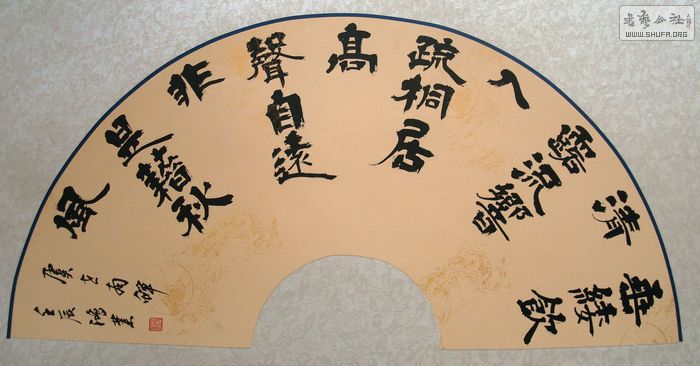 垂緌飲
清
露流響
出
疏桐居
高
聲自遠
非
是藉秋
風
虞世南蟬
壬辰鴻業
書藝公社
WWW.SHUFA.ORG